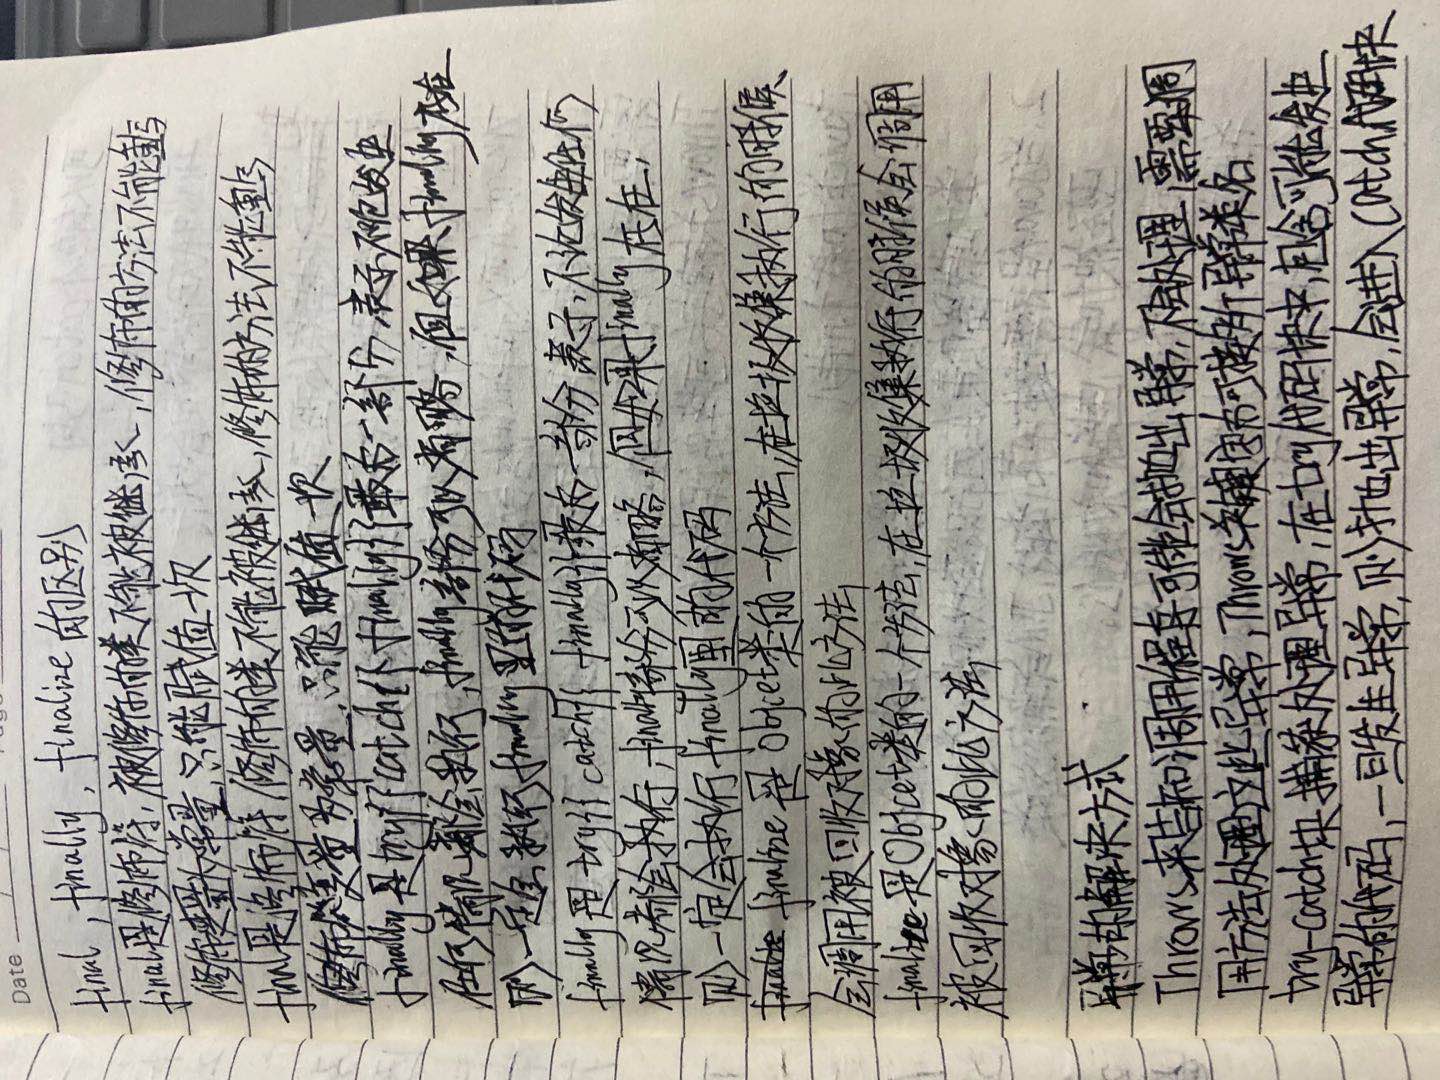 Date
final, finally, finalize的区别
final是修饰符,被修饰的类不能被继承,修饰的方法不能重写
修饰变量为常量,只能赋值一次
final是修饰符 修饰的类不能被继承,修饰的方法不能重写
修饰变量为常量,只能赋值一次
finally是try{}catch{}finally{}最后一部分,表示不论发生
任何情况都会执行,finally部分可以省略,但如果finally存在
则一定会执行finally里的代码
finally是try{}catch{}finally{}最后一部分 表示,不论发生任何
情况都会执行,finally部分可以省略,但如果finally存在,
则一定会执行finally里的代码
finalize是Objcet类的一个方法,在垃圾收集执行的时候
会调用被回收对象的此方法
finalize是Objcet类的一个方法,在垃圾收集执行的时候会调用
被回收对象的此方法
异常的解决方式
Throws来告知调用程序可能会抛出异常,不会处理,需要调
用方法处理这些异常,Throws关键字右可接多个异常类名
try-catch块捕获处理异常,在try代码块中,包含可能发生
异常的代码,一旦发生异常,则抛出异常,会进入catch代码块